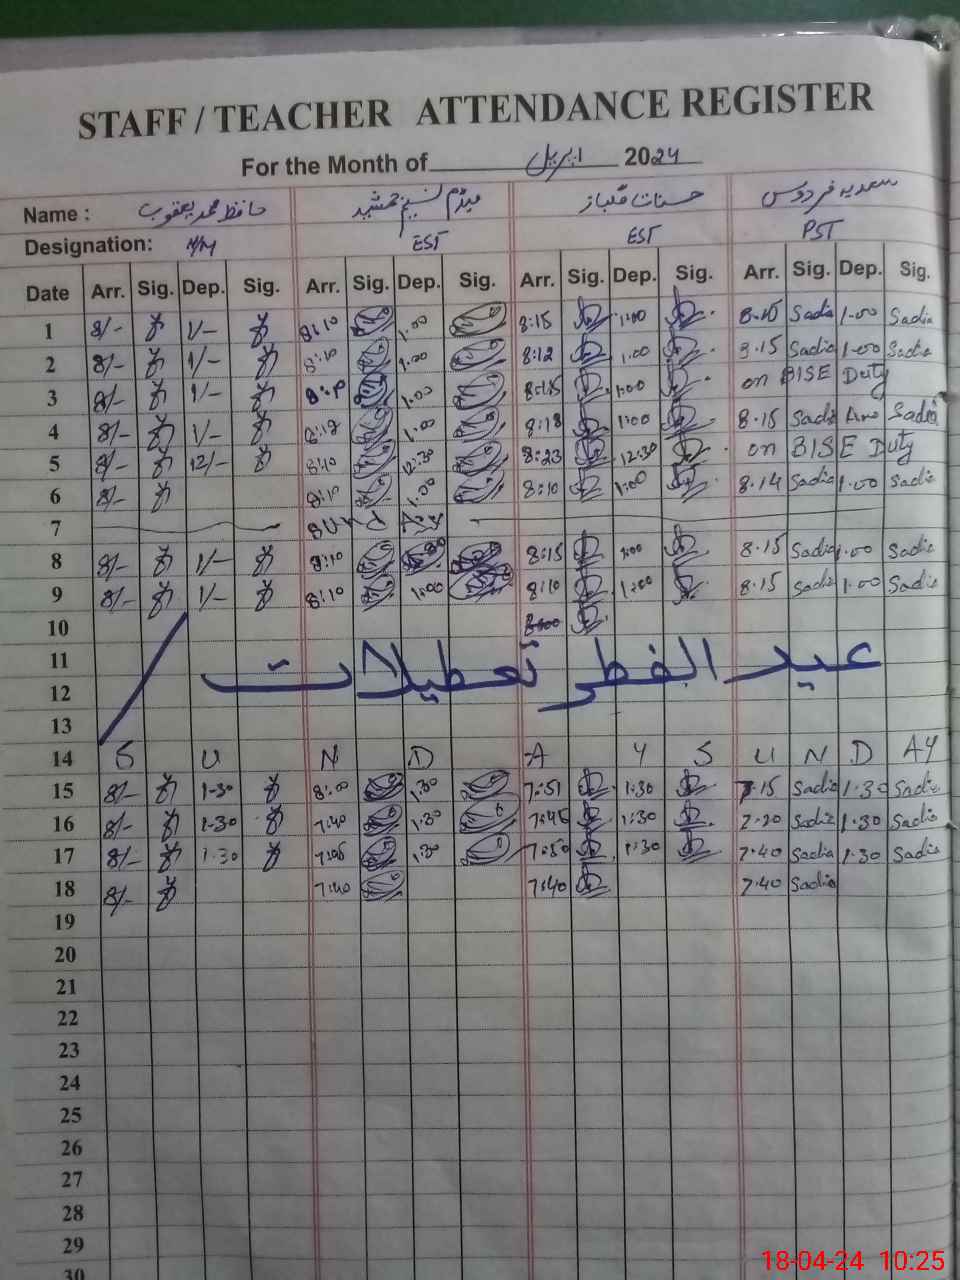 STAFF / TEACHER ATTENDANCE REGISTER
For the Month of اپریل 2024
Name : حافظ محمد یعقوب میڈم نسیم جمشید حسنات گلباز سعدیہ فردوس
Designation: EST EST PST
Date Arr. Sig. Dep. Sig. Arr. Sig. Dep. Sig. Arr. Sig. Dep. Sig. Arr. Sig. Dep. Sig.
1 8/- 1/- 8:10 1:00 8:15 1:00 8:15 Sadia 1:00 Sadia
2 8/- 1/- 8:10 1:00 8:12 1:00 8:15 Sadia 1:00 Sadia
3 8/- 1/- 1:00 8:15 1:00 on BISE Duty
4 8/- 1/- 8:12 1:00 8:18 1:00 8:15 Sadia Sadia
5 8/- 12/- 8:10 12:30 8:23 12:30 on BISE Duty
6 8/- 8:10 1:00 8:10 1:00 8:14 Sadia 1:00 Sadia
7
8 8/- 1/- 8:10 8:15 1:00 8:15 Sadia 1:00 Sadia
9 8/- 1/- 8:10 1:00 8:10 1:00 8:15 Sadia 1:00 Sadia
10
11 عید الفطر تعطیلات
12
13
14 S U N D A Y S U N D A Y
15 8/- 1-30 8:00 1:30 7:51 1:30 7:15 Sadia 1:30 Sadia
16 8/- 1-30 7:40 1:30 7:45 1:30 7:20 Sadia 1:30 Sadia
17 8/- 1-30 1:30 7:50 1:30 7:40 Sadia 1:30 Sadia
18 8/- 7:40 7:40 7:40 Sadia
19
20
21
22
23
24
25
26
27
28
29
30
18-04-24 10:25